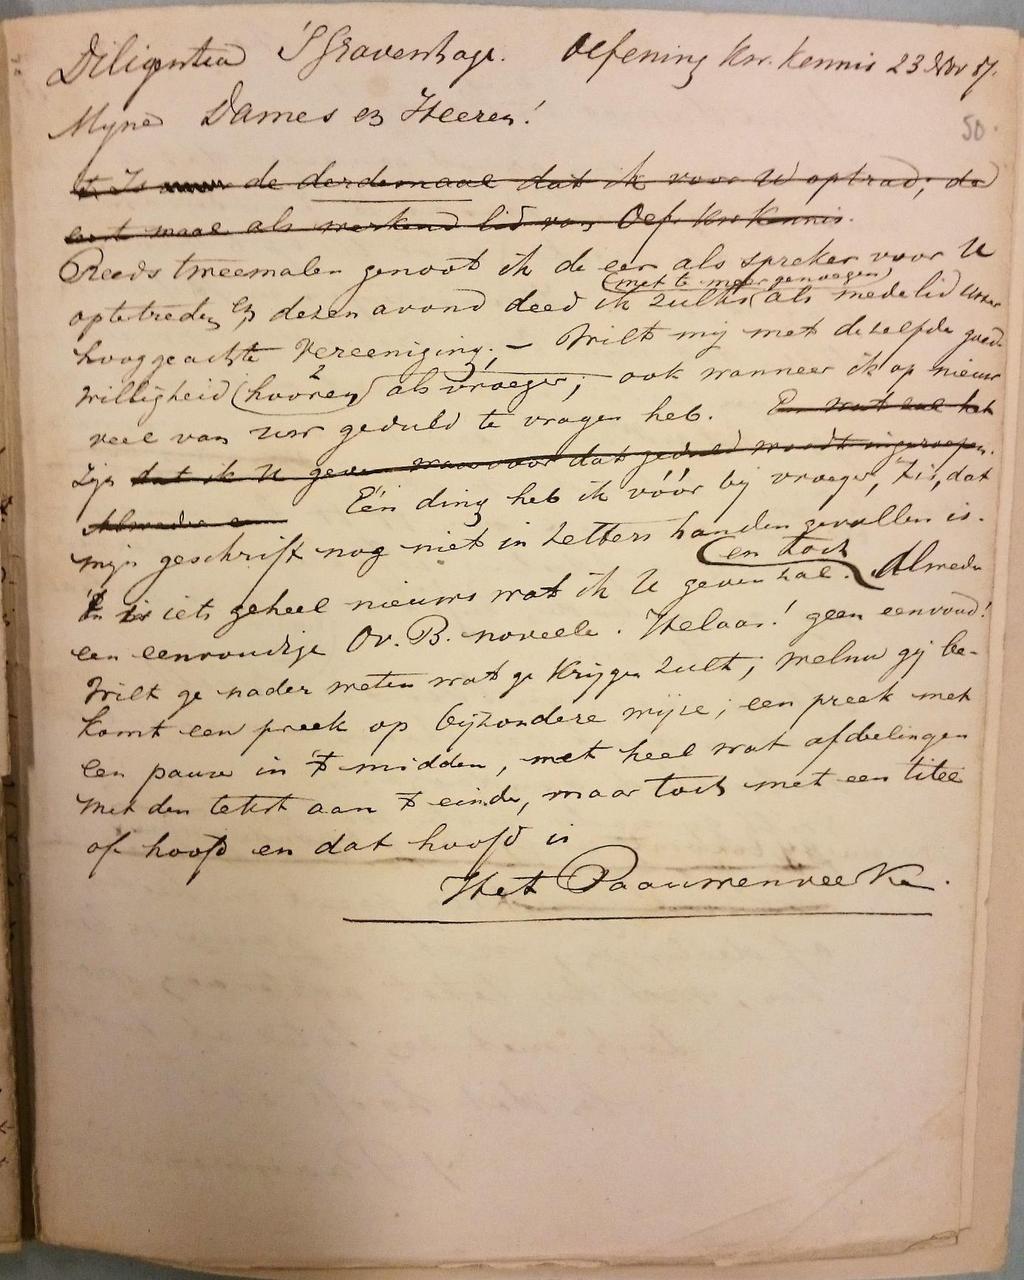 Diligentia 'S Gravenhage. Oefening Kw. Kennis 23 Nov 87.
50.
Mijne Dames en Heeren!
't Is de derdemaal dat ik voor U optrad; de
eerste maal als werkend lid van Oef. Kw Kennis.
Reeds tweemalen genoot ik de eer als spreker voor U
(met te meer genoegen)
optetreden en dezen avond deed ik zulks als medelid Uwer
hooggeachte Vereeniging. – Wilt mij met dezelfde goed-
willigheid (hooren) als vroeger, ook wanneer ik op nieuw
veel van uw geduld te vragen heb. En wat zal het
zijn dat ik U geven waarvoor dat geduld wordt ingeroepen.
Alweder een Eén ding heb ik vóór bij vroeger, 't is, dat
mijn geschrift nog niet in zetters handen gevallen is.
(en toch
iets geheel nieuws wat ik U geven zal. Alweder
een eenvoudige Ov. B. novelle. Helaas! geen eenvoud!
Wilt ge nader weten wat ge krijgen zult; welnu gij be-
komt een preek op bijzondere wijze; een preek met
een pauze in 't midden, met heel wat afdeelingen
met den tekst aan 't einde, maar toch met een titel
of hoofd en dat hoofd is
Het Paauwenveerke.